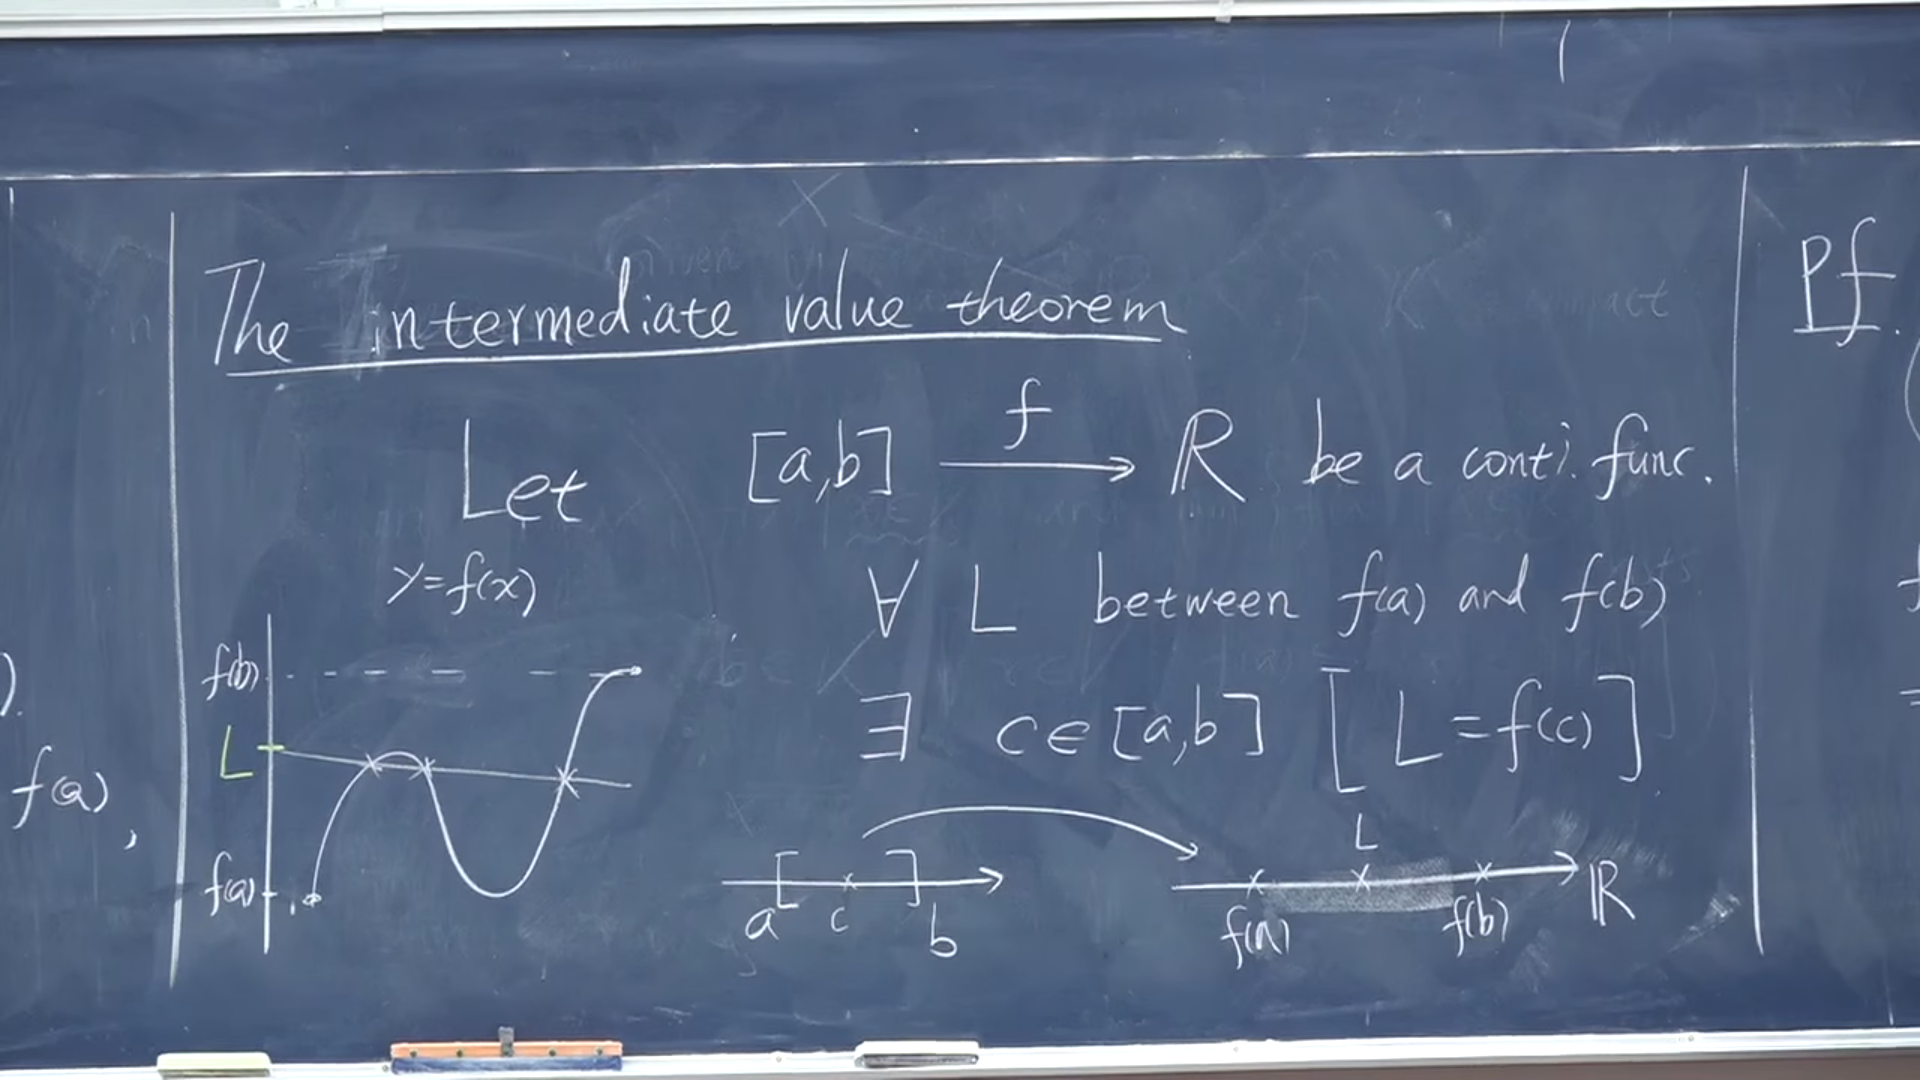 The intermediate value theorem
Let [a,b] f → ℝ be a conti. func.
y=f(x)
∀ L between f(a) and f(b)
∃ c∈[a,b] [L=f(c)]
f(b)
L
f(a)
a c b
L
f(a) f(b) ℝ
f(a),
Pf.